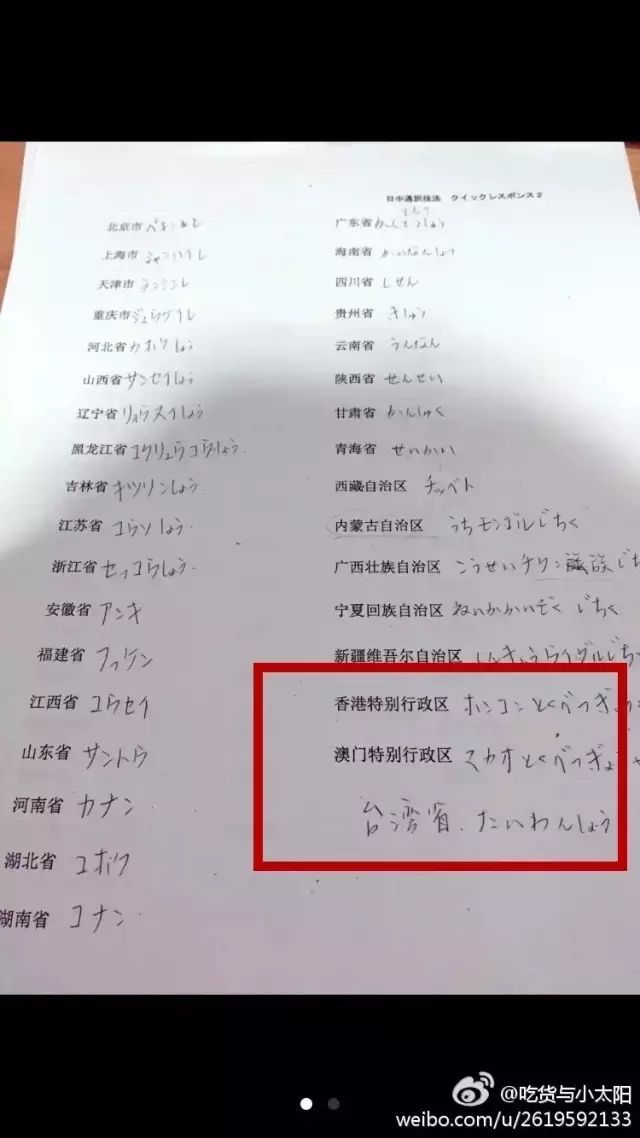 日中通訳技法 クイックレスポンス2
北京市 ペキンし
上海市 シャンハイし
天津市 テンシンし
重庆市
河北省 カホクしょう
山西省 サンセイしょう
辽宁省
黑龙江省 コクリュウコウしょう
吉林省 キツリンしょう
江苏省 コウソしょう
浙江省 セッコウしょう
安徽省 アンキ
福建省 フッケン
江西省 コウセイ
山东省 サントウ
河南省 カナン
湖北省 コホク
湖南省 コナン
广东省 かんとうしょう
海南省 かいなんしょう
四川省 しせん
贵州省 きしゅう
云南省 うんなん
陕西省 せんせい
甘肃省 かんしゅく
青海省 せいかい
西藏自治区 チッベト
内蒙古自治区 うちモンゴルじちく
广西壮族自治区 こうせいチワン 族じち
宁夏回族自治区 ねいかかいぞく じちく
新疆维吾尔自治区 しんきょうウイグルじち
香港特别行政区 ホンコンとくべつぎょう
澳门特别行政区 マカオとくべつぎょう
台湾省 たいわんしょう
@吃货与小太阳
weibo.com/u/2619592133